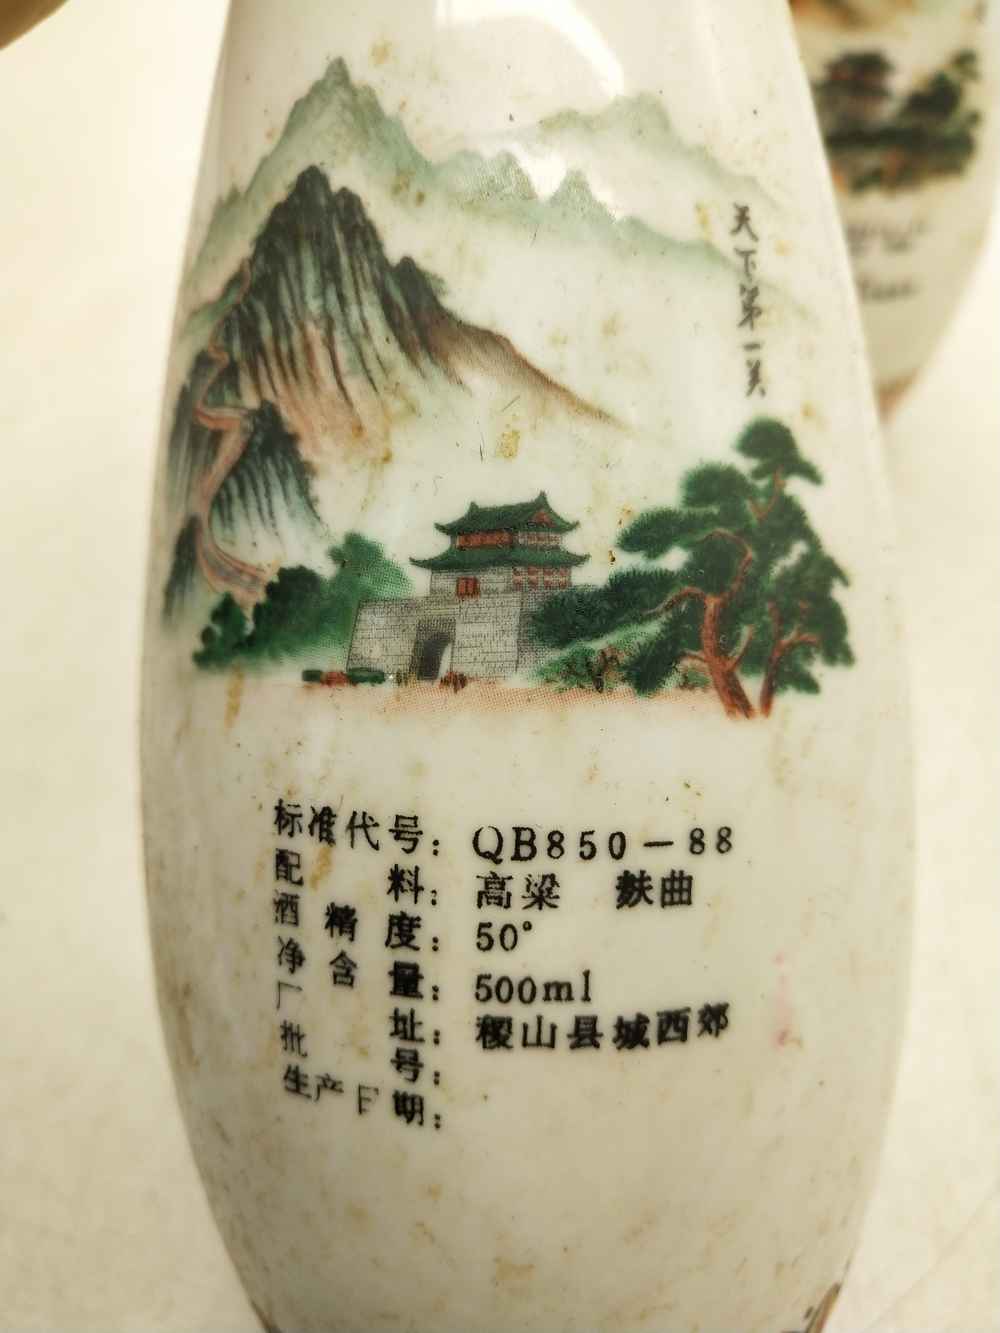 天下第一关
标准代号：QB850－88
配料：高粱 麸曲
酒精度：50°
净含量：500ml
厂址：稷山县城西郊
批号：
生产日期：